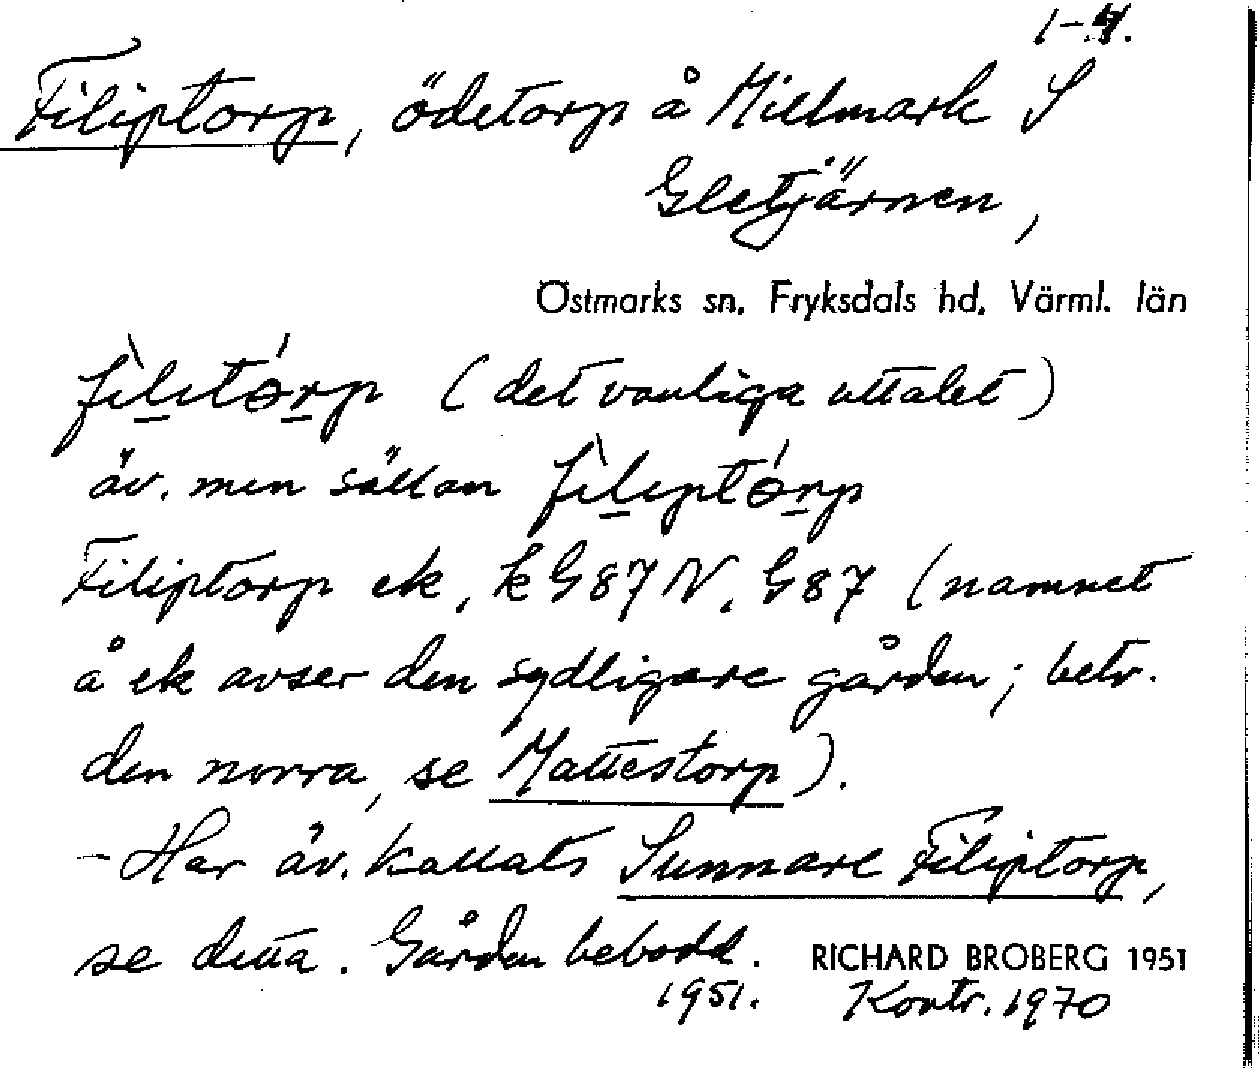 1-4.
Filiptorp, ödetorp å Millmark S
Gletjärnen,
Östmarks sn. Fryksdals hd. Värml. län
fìlitórp (det vanliga uttalet)
äv. men sällan fìliptórp
Filiptorp ek, k G87 N. G87 (namnet
å ek avser den sydligare gården; betr.
den norra, se Mattestorp).
- Har äv. kallats Sunnare Filiptorp,
se detta. Gården bebodd.
RICHARD BROBERG 1951
1951. Kontr. 1970